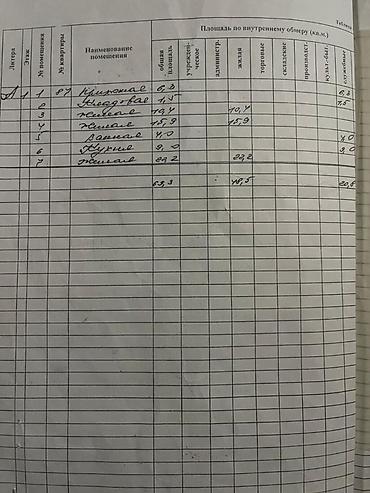 Площадь по внутреннему обмеру (кв.м.)
Литера Этаж № помещения № квартиры Наименование помещения общая площадь учрежден-ческое администр. жилая торговые складские производст. культ.-быт. служебные
А 1 1 87 Прихожая 6,3 6,3
2 Кладовая 1,5 1,5
3 Жилая 10,4 10,4
4 Жилая 15,9 15,9
5 Ванная 4,0 4,0
6 Кухня 9,0 9,0
7 Жилая 22,2 22,2
69,3 48,5 20,8